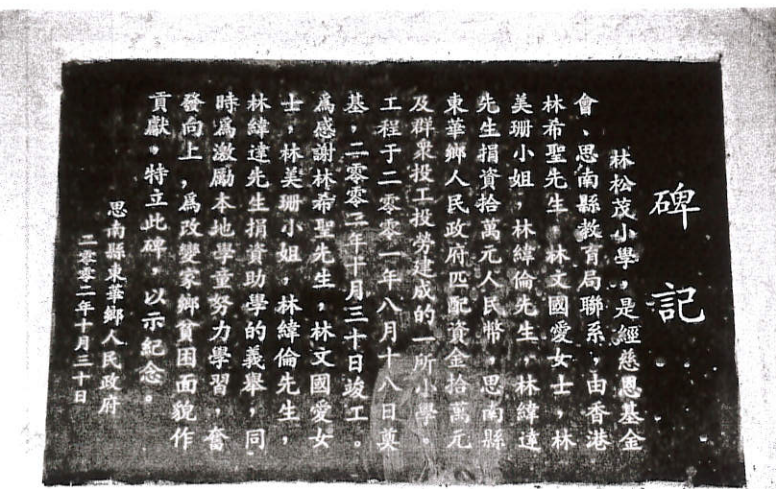 碑記
林松茂小學，是經慈恩基金
會、思南縣教育局聯系，由香港
林希聖先生，林文國愛女士，林
美珊小姐，林緯倫先生，林緯達
先生捐資拾萬元人民幣，思南縣
東華鄉人民政府匹配資金拾萬元
及群衆投工投勞建成的一所小學。
工程于二零零一年八月十八日奠
基，二零零二年十月三十日竣工。
爲感謝林希聖先生，林文國愛女
士，林美珊小姐，林緯倫先生，
林緯達先生捐資助學的義舉，同
時爲激勵本地學童努力學習，奮
發向上，爲改變家鄉貧困面貌作
貢獻，特立此碑，以示紀念。
思南縣東華鄉人民政府
二零零二年十月三十日